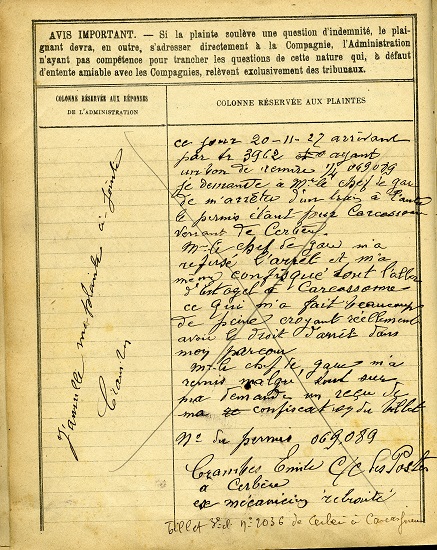 AVIS IMPORTANT. — Si la plainte soulève une question d'indemnité, le plai-
gnant devra, en outre, s'adresser directement à la Compagnie, l'Administration
n'ayant pas compétence pour trancher les questions de cette nature qui, à défaut
d'entente amiable avec les Compagnies, relèvent exclusivement des tribunaux.
COLONNE RÉSERVÉE AUX RÉPONSES
DE L'ADMINISTRATION
J'annulle ma plainte ci jointe
COLONNE RÉSERVÉE AUX PLAINTES
ce jour 20-11-27 arrivant
par tr 3962 ayant
un bon de remise 069089
Je demande à Mr le chef de gare
de m'arrêter d'un train à l'autre
le permis étant pour Carcassonne
venant de Cerbère.
Mr le chef de gare m'a
refusé l'arrêt et m'a
même confisqué tout l'aller
d'Estagel à Carcassonne
ce qui m'a fait beaucoup
de peine croyant réellement
avoir le droit d'arrêt dans
mon parcour
Mr le chef de gare m'a
remis malgré tout sur
ma demande un reçu de
ma confiscation du billet
No du permis 069089
Crambes Emile c/c les Postes
a Cerbère
ex mécanicien retraité
Billet No 2036 de Cerbère à Carcassonne